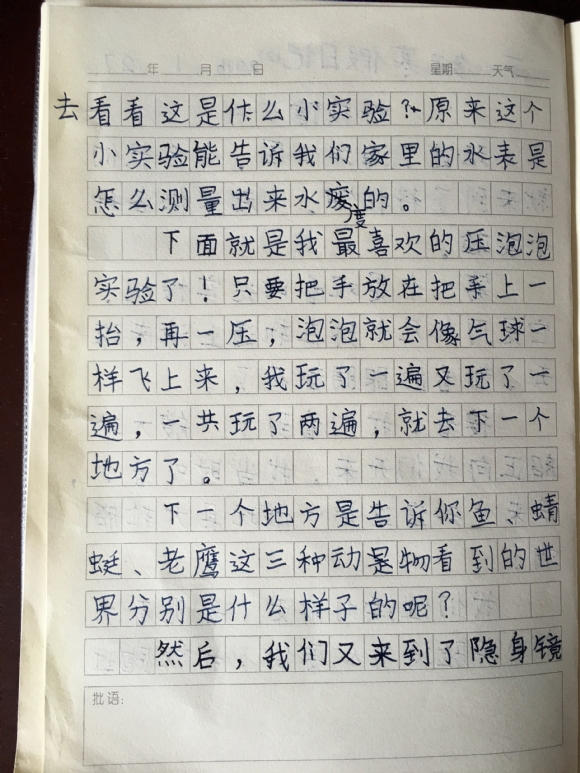 年 月 日 星期 天气
去看看这是什么小实验?原来这个
小实验能告诉我们家里的水表是
怎么测量出来水度的。
下面就是我最喜欢的压泡泡
实验了!只要把手放在把手上一
抬,再一压,泡泡就会像气球一
样飞上来,我玩了一遍又玩了一
遍,一共玩了两遍,就去下一个
地方了。
下一个地方是告诉你鱼、蜻
蜓、老鹰这三种动是物看到的世
界分别是什么样子的呢?
然后,我们又来到了隐身镜
批语: